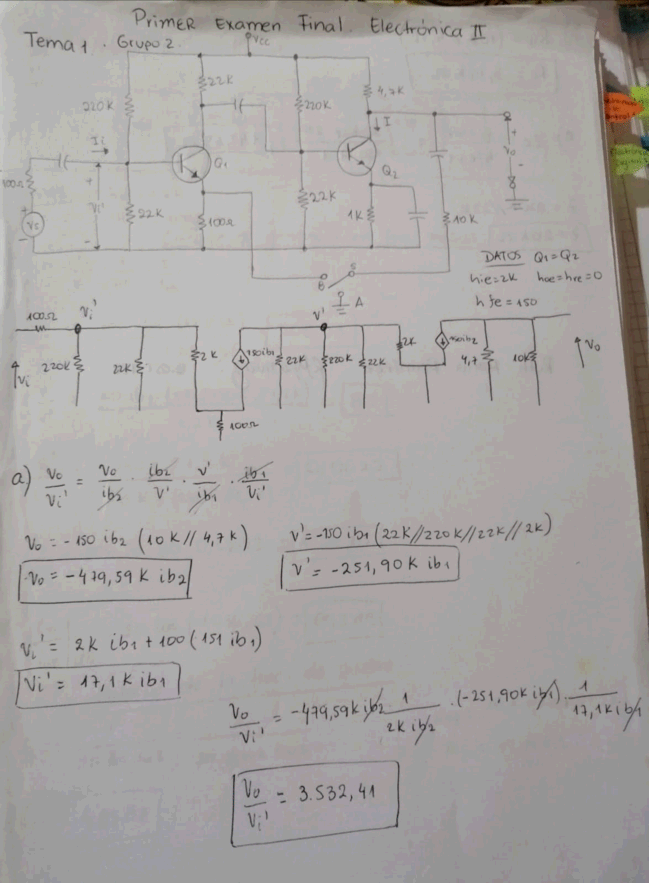 Primer Examen Final. Electrónica II
Tema 1. Grupo 2.
Vcc
22K
4,7K
220K
220K
I
Ii
Q1
Q2
100Ω
+
Vo
-
+
Vi'
-
22K
22K
1K
10K
100Ω
+
Vi
-
B
A
DATOS Q1=Q2
hie=2K hoe=hre=0
hfe=150
100Ω
Vi'
V'
Vi
220K
22K
2K
150ib1
22K
220K
22K
2K
150ib2
4,7
10K
Vo
100Ω
a) Vo/Vi' = Vo/ib2 · ib2/V' · V'/ib1 · ib1/Vi'
Vo = -150 ib2 (10K//4,7K)
V' = -150 ib1 (22K//220K//22K//2K)
Vo = -479,59K ib2
V' = -251,90K ib1
Vi' = 2K ib1 + 100(151 ib1)
Vi' = 17,1K ib1
Vo/Vi' = -479,59K ib2 · 1/2K ib2 · (-251,90K ib1) · 1/17,1K ib1
Vo/Vi' = 3.532,41